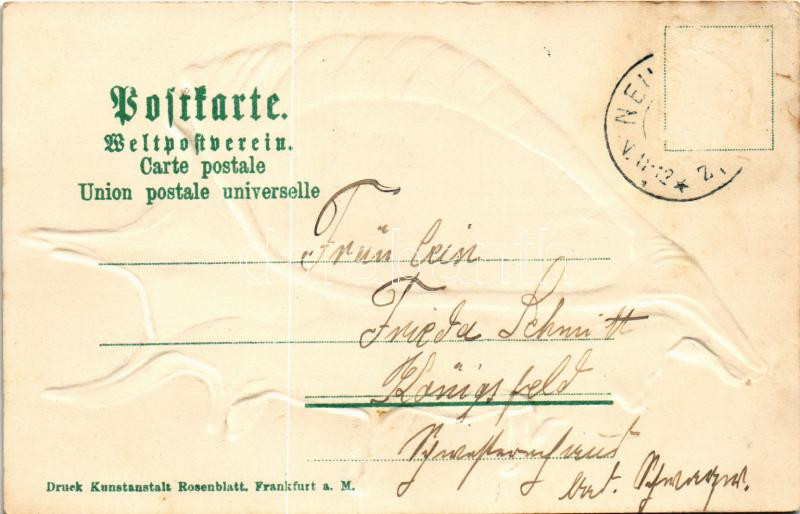 Postkarte.
Weltpostverein.
Carte postale
Union postale universelle
NEU
V. 11-12 ★ 2
Fräulein
Frieda Schmitt
Königsfeld
Schwesternhaus
bad. Schwarzw.
Druck Kunstanstalt Rosenblatt, Frankfurt a. M.